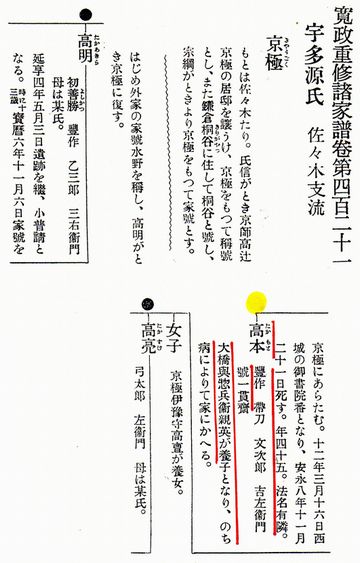 寛政重修諸家譜卷第四百二十一
宇多源氏 佐々木支流
京極
きやうごく
もとは佐々木たり。氏信がとき京師高辻
京極の居邸を讓うけ、京極をもつて稱號
とし、また鎌倉桐谷に住して桐谷と號し、
きりがやつ
宗綱がときより京極をもつて家號とす。
はじめ外家の家號水野を稱し、高明がと
き京極に復す。
高明
たかあきら
初善勝 豐作 乙三郎 三右衞門
母は某氏。
延享四年五月三日遺跡を繼、小普請と
なる。時に十三歲 寶曆六年十一月六日家號を
京極にあらたむ。十二年三月十六日西
城の御書院番となり、安永八年十一月
二十一日死す。年四十五。法名有隣。
高本
たかもと
豐作 帶刀 文次郎 吉左衞門
號一貫齋
大橋與惣兵衞親英が養子となり、のち
病によりて家にかへる。
女子
京極伊豫守高亶が養女。
高亮
たかすけ
弓太郎 左衞門 母は某氏。